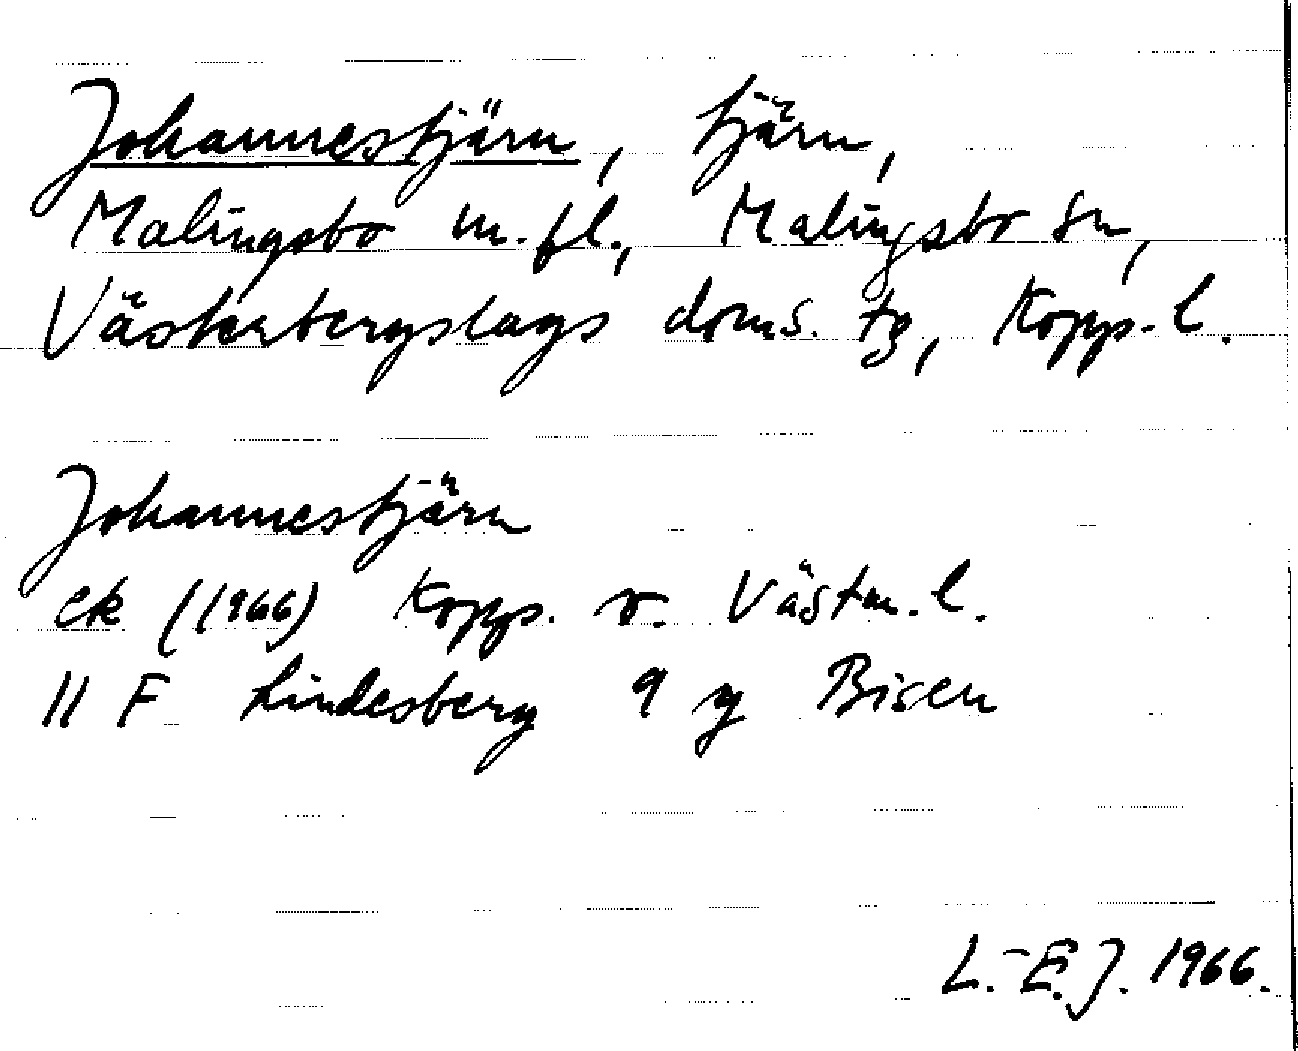 Johannestjärn, tjärn,
Malingsbo m.fl., Malingsbo sn,
Västerbergslags doms. tg, Kopp. l.
Johannestjärn
ek (1966) Kopp. o. Västm. l.
11 F Lindesberg 9 g Bisen
L.-E.J. 1966.